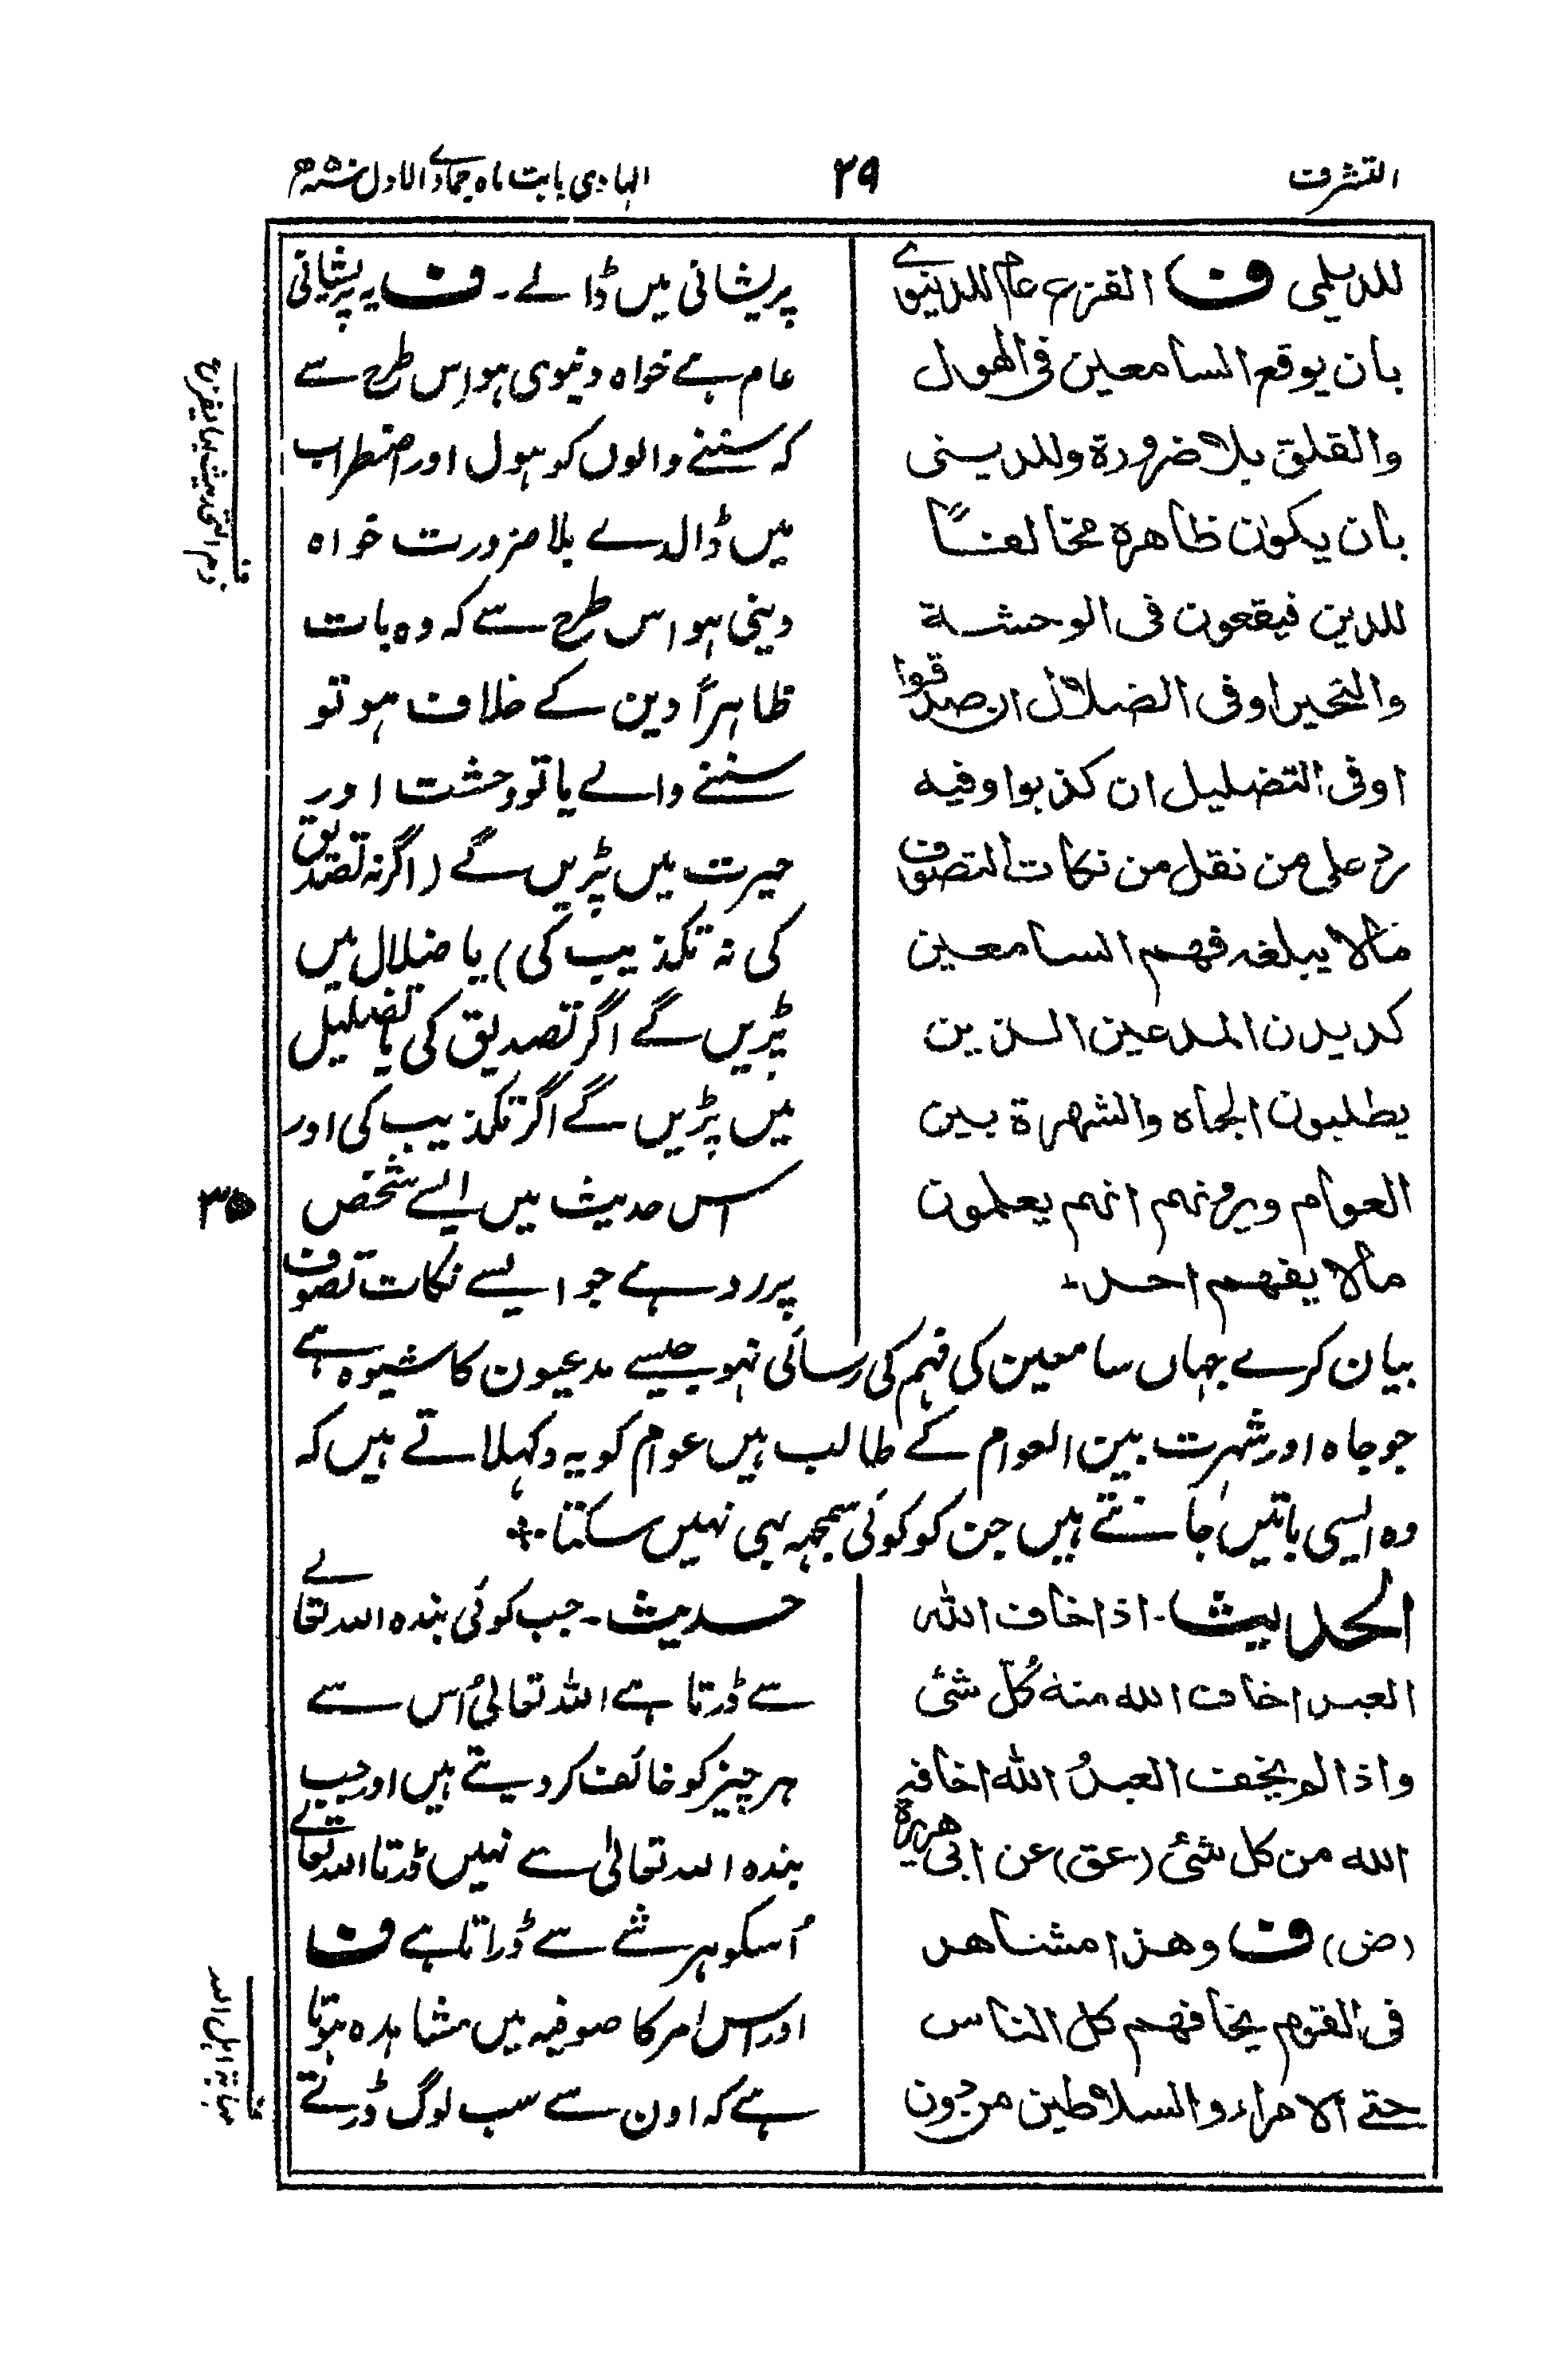 التشرف
٢٩
الہادی بابت ماہ جمادی الاول
للدیلمی ف الفزع عام للدنیوی
بان یوقع السامعین فی الهول
والقلق بلا ضرورة وللدینی
بان یکون ظاهرة مخالفًا
للدین فیقعون فی الوحشة
والتحیر او فی الضلال ان صدقوا
او فی التضلیل ان کذبوا وفیه
رد علی من نقل من نکات التصوف
مالا یبلغه فهم السامعین
کدیدن المدعین الذین
یطلبون الجاه والشهرة بین
العوام ویرونهم انهم یعلمون
مالا یفهم احد
پریشانی میں ڈالے۔ ف یہ پریشانی
عام ہے خواہ دنیوی ہو اِس طرح سے
کہ سننے والوں کو ہول اور اضطراب
میں ڈالدے بلا ضرورت خواہ
دینی ہو اس طرح سے کہ وہ بات
ظاہراً دین کے خلاف ہو تو
سننے والے یا تو وحشت اور
حیرت میں پڑیں گے (اگر نہ تصدیق
کی نہ تکذیب کی) یا ضلال میں
پڑیں گے اگر تصدیق کی یا تضلیل
میں پڑیں گے اگر تکذیب کی اور
اس حدیث میں ایسے شخص
پر رد ہے جو ایسے نکات تصوف
بیان کرے جہاں سامعین کی فہم کی رسائی نہو جیسے مدعیون کا شیوہ ہے
جو جاہ اور شہرت بین العوام کے طالب ہیں عوام کو یہ دکہلاتے ہیں کہ
وہ ایسی باتیں جانتے ہیں جن کو کوئی سمجہہ بہی نہیں سکتا
الحدیث۔ اذا خاف الله
العبد اخاف الله منه کُلّ شئ
واذا لم یخف العبدُ الله اخافه
الله من کل شئ (عق) عن ابی هریرة
(ض) ف وهذا مشاهد
فی القوم یخافهم کل الناس
حتے الامراء والسلاطین من دون
حدیث۔ جب کوئی بندہ اللہ تعالے
سے ڈرتا ہے اللہ تعالیٰ اُس سے
ہر چیز کو خائف کر دیتے ہیں اور جب
بندہ اللہ تعالیٰ سے نہیں ڈرتا اللہ تعالے
اُسکو ہر شے سے ڈراتا ہے ف
اور اس امر کا صوفیہ میں مشاہدہ ہوتا
ہے کہ اون سے سب لوگ ڈرتے